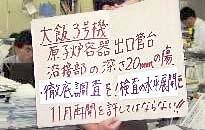 大飯3号機
原子炉容器出口管台
溶接部の深さ20mmの傷
徹底調査を!検査の水平展開を!
11月再開を許してはならない!!